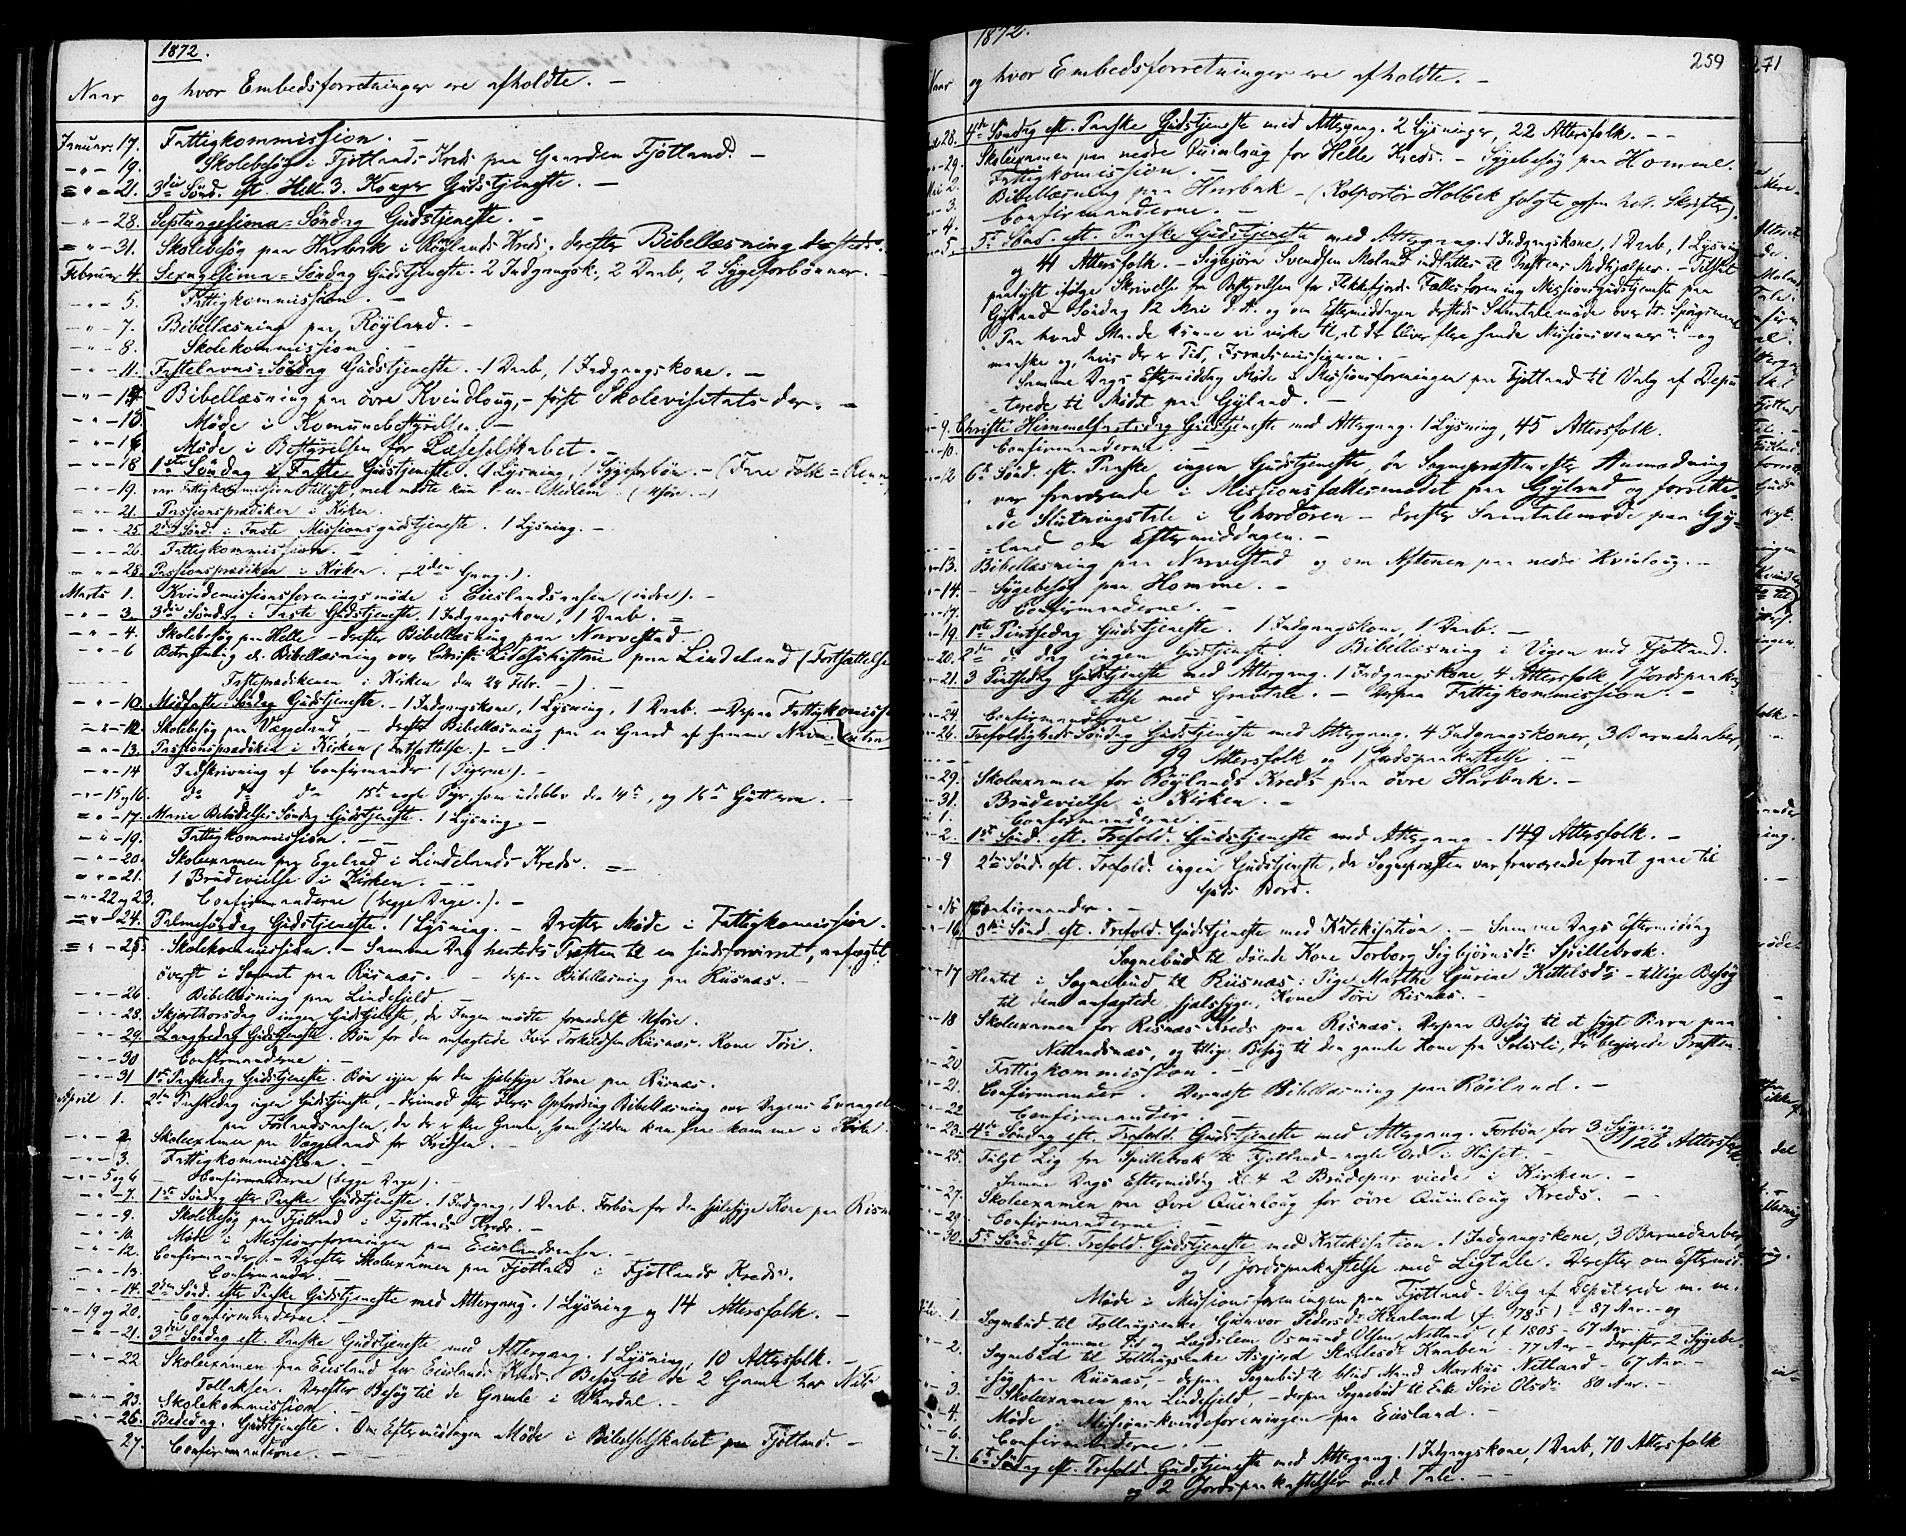 1872.
Naar og hvor Embedsforretninger ere afholdte. –
Januar 17. Fattigkommission. –
– " – 19. Skolebesög i Fjotlands Kreds paa Gaarden Fjotland. –
– " – 21. 3die Sönd. eft. Hell. 3. Konger Gudstjeneste. –
– " – 28. Septuagesima-Söndag Gudstjeneste. –
– " – 31. Skolebesög paa Harbak i Röylands Kreds, derefter Bibellæsning dersteds.
Februar 4. Sexagesima-Söndag Gudstjeneste. 2 Indgangsk., 2 Daab, 2 Sygeforbönner. –
– " – 5. Fattigkommission. –
– " – 7. Bibellæsning paa Röyland. –
– " – 8. Skolekommission. –
– " – 11. Fastelavns-Söndag Gudstjeneste. 1 Daab, 1 Indgangskone. –
– " – 14. Bibellæsning paa övre Kvindloug, – först Skolevisitats der. –
– " – 15. Möde i Komunebestyrelsen. –
– " – 16. Möde i Bestyrelsen for Læseselskabet. –
– " – 18. 1ste Söndag i Faste Gudstjeneste. 1 Lysning, 1 Sygeforbön. – (Faae Folk =
– " – 19. var Fattigkommission tillyst, men mödte kun en Medlem. (Uföre. –)
– " – 21. Passionsprædiken i Kirken.
– " – 25. 2den Sönd. i Faste Missionsgudstjeneste. 1 Lysning. –
– " – 26. Fattigkommission. –
– " – 28. Passionsprædiken i Kirken. (2den Gang.).
Marts 1. Kvindemissionsforeningsmöde i Eieslandsaasen (indre). –
– " – 3. 3die Söndag i Faste Gudstjeneste. 1 Indgangskone, 1 Daab. –
– " – 4. Skolebesög paa Helle – derefter Bibellæsning paa Narvestad.
– " – 6 Betragtning el. Bibellæsning over Christi Lidelseshistorie paa Lindeland (Fortsættelse
Fasteprædikenen i Kirken den 28 Febr. –) –
– " – 10. Midfaste-Söndag Gudstjeneste. – 1 Indgangskone, 1 Lysning, 1 Daab. – Derpaa Fattigkomiss
– " – 12. Skolebesög paa Væggeland, – derefter Bibellæsning paa en Gaard af samme Navn
– " – 13. Passionsprædiken i Kirken (Fortsættelse.) –
– " – 14 Indskrivning af Confirmander (Pigerne). –
– " – 15 og 16. do do do 15de nogle Piger, som udeblev den 14de, og 16de Gutterne. –
– " – 17. Marie Bebudelses Söndag Gudstjeneste. 1 Lysning. –
– " – 19. Fattigkommission. –
– " – 20. Skoleexamen paa Egeland i Lindelands Kreds. –
– " – 21. 1 Brudevielse i Kirken. –
– " – 22 og 23. Confirmanderne (begge Dage.). –
– " – 24. Palmesöndag Gudstjeneste. 1 Lysning. – Derefter Möde i Fattigkommission.
– " – 25. Skolekommission. – Samme Dag hentedes Præsten til en sindsforvirret, anfægtet
överst i Sognet paa Risnæs. derpaa Bibellæsning paa Risnæs. –
– " – 26. Bibellæsning paa Lindefjeld. –
– " – 28. Skjærthorsdag ingen Gudstjeneste, da Ingen mödte formedelst Uföre.
– " – 29. Langfredag Gudstjeneste. Bön for den anfægtede Iver Torkildsen Risnæs. Kone Töri.
– " – 30 Confirmanderne. –
– " – 31. 1ste Paaskedag Gudstjeneste. Bön igjen for den sjælesyge Kone paa Risnæs.
April 1. 2den Paaskedag ingen Gudstjeneste, – derimod efter Fleres Opfordring Bibellæsning over Dagens Evangel
paa Förlandsaasen, da der er flere Gamle, som sjelden kan faae komme i Kirke.
– " – 2. Skoleexamen paa Væggeland for Kredsen. –
– " – 3. Fattigkommission. –
– " – 5 og 6 Confirmanderne (begge Dage). –
– " – 7. 1ste Söndag efter Paaske Gudstjeneste. 1 Indgang, 1 Daab. Forbön for den sjælesyge Kone paa Risn
– " – 9. Skolebesög paa Fjotland i Fjotlands Kreds. –
– " – 10. Möde i Missionsforeningen paa Eieslandsaasen. –
– " – 12. Confirmander. – Derefter Skoleexamen paa Fjotland i Fjotlands Kreds.
– " – 13. Confirmander. –
– " – 14. 2den Sönd. efter Paaske Gudstjeneste med Altergang. 1 Lysning og 14 Altersfolk. –
– " – 19 og 20. Confirmanderne. –
– " – 21. 3die Söndag eft. Paaske Gudstjeneste med Altergang. 1 Lysning, 10 Altersfolk. –
– " – 22 Skoleexamen paa Eiesland for Eieslands Kreds. Besög til de 2 Gamle hos Nils
Tollaksen. Derefter Besög til de Gamle i
– " – 23. Skolekommission. –
– " – 26. Bededag. Gudstjeneste. Om Eftermiddagen Möde i Bibelselskabet paa Fjotland. –
27. Confirmanderne. –
1872.
259
271
Naar og hvor Embedsforretninger ere afholdte. –
28. 4de Söndag eft. Paaske Gudstjeneste med Altergang. 2 Lysninger, 22 Altersfolk. – –
– 29. Skoleexamen paa nedre Quinloug for Helle Kreds. – Sygebesög paa Homme.
2. Fattigkommission. –
3. Bibellæsning paa Harbak – (Kolportör Holbek solgte ogsaa hel. Skrifter).
4. Confirmanderne. –
5. 5te Sönd. eft. Paaske Gudstjeneste med Altergang. 1 Indgangskone, 1 Daab, 1 Lysning
og 41 Altersfolk. – Sigbjörn Svendsen Moland indsattes til Præstens Medhjælper. –
ifölge Skrivelse fra Bestyrelsen for Flekkefjords Fællesforening Missionsgudstjeneste paa
Gyland Söndag 12 Mai d. A. og om Eftermiddagen dersteds Samtalemöde over dt. Spörgsmaal
"Paa hvad Maade kunne vi virke til, at der bliver flere sande Missionsvenner?" – og
maaske og, hvis der er Tid, Israelsmissionen. –
Samme Dags Eftermiddag Möde i Missionsforeningen paa Fjotland til Valg af Depu
terede til Mödet paa Gyland. –
– 9. Christi Himmelfartsdag Gudstjeneste med Altergang. 1 Lysning, 45 Altersfolk.
– 10. Confirmanderne. –
– 12 6te Sönd. eft. Paaske ingen Gudstjeneste, da Sognepræsten efter Anmodning
var fraværende i Missionsfællesmödet paa Gyland og forrette-
de Slutningstale i Chordören – derefter Samtalemöde paa Gy-
land om Eftermiddagen. –
– 13. Bibellæsning paa Narvestad og om Aftenen paa nedre Kvinloug. –
– 14 – Sygebesög paa Homme. –
– 17. Confirmanderne. –
– 19. 1ste Pintsedag Gudstjeneste. 1 Indgangskone, 1 Daab. –
– 20. 2den do dag ingen Gudstjeneste – Bibellæsning i Vigen ved Fjotland.
– 21. 3 Pintsedag Gudstjeneste med Altergang. 1 Indgangskone, 4 Altersfolk, 1 Jordpaakas
telse med Gravtale. – Derpaa Fattigkommission. –
– 24. Confirmanderne. –
– 26. Trefoldigheds Söndag Gudstjeneste med Altergang. 4 Indgangskoner, 3 Barnedaaber,
99 Altersfolk og 1 Jordpaakastelse. –
– 29. Skoleexamen for Röylands Kreds paa övre Harbak. –
– 31. Brudevielse i Kirken. –
1. Confirmanderne. –
– 2. 1ste Sönd. eft. Trefold. Gudstjeneste med Altergang – 149 Altersfolk. –
– 9 2den Sönd. eft. Trefold. ingen Gudstjeneste, da Sognepræsten var fraværende forat gaae til
Guds Bord.
– 15 Confirmander. –
– 16. 3die Sönd. eft. Trefold. Gudstjeneste med Katekisation. – Samme Dags Eftermiddag
Sognebud til döende Kone Torborg Sigbjörnsdtr Spillebrok.
– 17 Hentet i Sognebud til Risnæs: Pige Marthe Gurine Kittelsdtr – tillige Besög
til den anfægtede, sjælesyge, Kone Töri Risnæs. –
– 18 Skoleexamen for Risnæs Kreds paa Risnæs. Derpaa Besög til et sygt Barn paa
Netlandsnæs, og tillige Besög til den gamle Kone fra Solisli, der begjærede Præsten.
– 20 Fattigkommission. –
– 21. Confirmander. Dernæst Bibellæsning paa Röiland. –
– 22. Confirmander. –
– 23. 4de Söndag eft. Trefold. Gudstjeneste med Altergang. Forbön for 3 Syge. og
126 Altersfolk
– 25. Fulgt Lig fra Spillebrok til Fjotland – nogle Ord i Huset. –
Samme Dags Eftermiddag Kl. 4 2 Brudepar viede i Kirken. –
– 27. Skoleexamen paa Övre Quinloug for övre Quinloug Kreds. –
– 29. Confirmanderne. –
– 30. 5te Sönd. eft. Trefold. Gudstjeneste med Katekisation. 1 Indgangskone, 3 Barnedaaber
og 1 Jordpaakastelse med Ligtale. Derefter om Eftermid.
Möde i Missionsforeningen paa Fjotland – Valg af Deputerede m. m.
1. Sognebud til Föllingsenke Gunvor Pedersdtr Haaland (f 1785) – 87 Aar. – og
samme Tid og Lægdslem Osmund Olsen Netland (f 1805 – 67 Aar. –
– 2. Sognebud til Föllingsenke Asgjerd Knaben – 77 Aar – derefter 2 Sygebe-
sög paa Risnæs, – derpaa Sognebud til blind Mand Markus Netland – 67 Aar –
– 3. – Skoleexamen paa Lindefjeld, – derpaa Sognebud til Enke Siri Olsdtr 80 Aar. –
– 4. Möde i Missionskvindeforeningen paa Eiesland. –
– 6. Confirmanderne. –
– 7. 6te Söndag eft. Trefold. Gudstjeneste med Altergang. 1 Indgangskone, 1 Daab, 70 Altersfolk
og 2 Jordpaakastelser med Tale. –